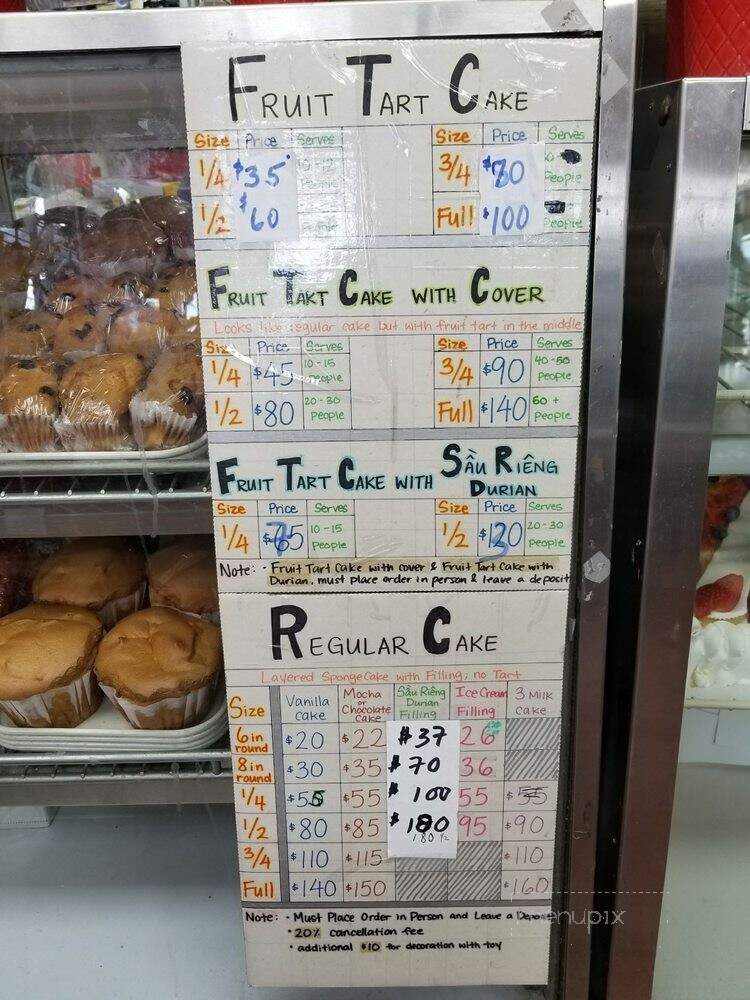 FRUIT TART CAKE
Size Price Serves Size Price Serves
1/4 $35 10-12 People 3/4 $80 People
1/2 $60 People Full $100 People
FRUIT TART CAKE WITH COVER
Looks like regular cake but with fruit tart in the middle
Size Price Serves Size Price Serves
1/4 $45 10-15 People 3/4 $90 40-50 People
1/2 $80 20-30 People Full $140 60+ People
FRUIT TART CAKE WITH SẦU RIÊNG
DURIAN
Size Price Serves Size Price Serves
1/4 $75 10-15 People 1/2 $130 20-30 People
Note: - Fruit Tart Cake with cover & Fruit Tart Cake with
Durian, must place order in person & leave a deposit
REGULAR CAKE
Layered Sponge Cake with Filling; no Tart
Size Vanilla Cake Mocha or Chocolate Cake Sầu Riêng Durian Filling Ice Cream Filling 3 Milk Cake
6 in round $20 $22 $37 26
8 in round $30 $35 $70 36
1/4 $55 $55 $100 55 $55
1/2 $80 $85 $180 95 $90
3/4 $110 $115 $110
Full $140 $150 $160
Note: - Must Place Order in Person and Leave a
• 20% cancellation fee
• additional $10 for decoration with toy
menupix